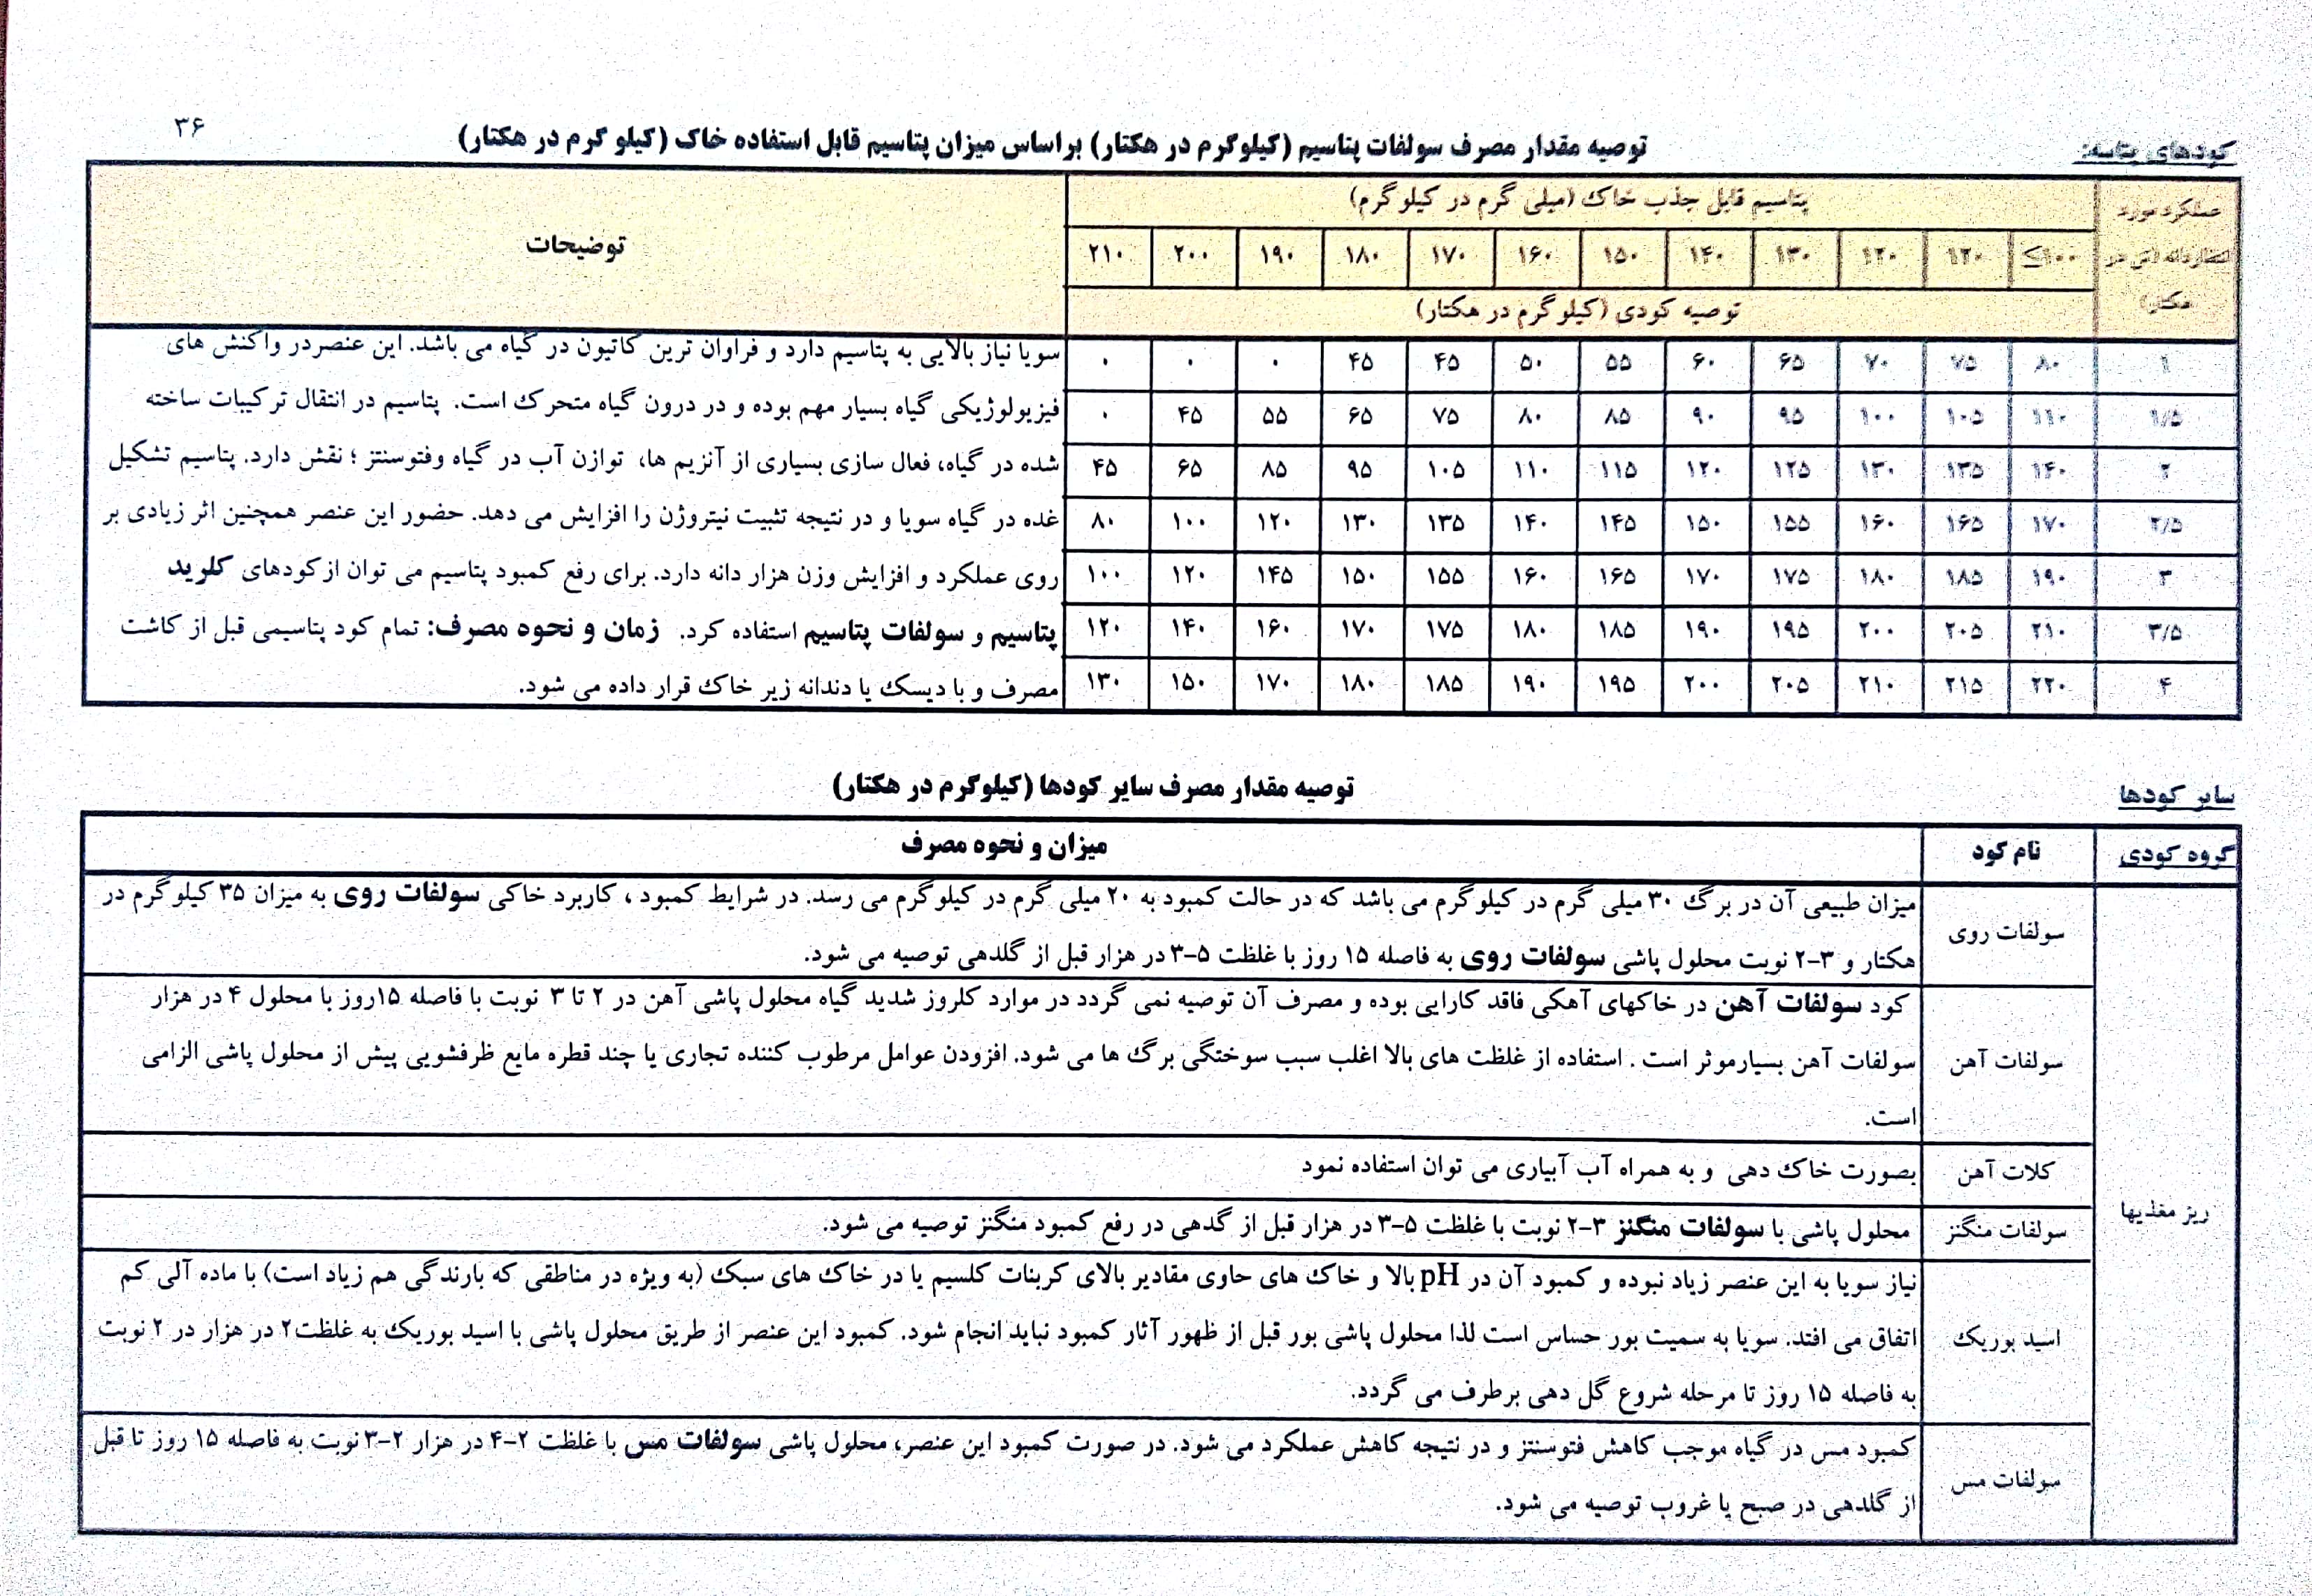 ۳۶
کودهای پتاسه:
توصیه مقدار مصرف سولفات پتاسیم (کیلوگرم در هکتار) براساس میزان پتاسیم قابل استفاده خاک (کیلو گرم در هکتار)
عملکرد مورد انتظار دانه (تن در هکتار)
پتاسیم قابل جذب خاک (میلی گرم در کیلوگرم)
توضیحات
≤۱۰۰ ۱۲۰ ۱۲۰ ۱۳۰ ۱۴۰ ۱۵۰ ۱۶۰ ۱۷۰ ۱۸۰ ۱۹۰ ۲۰۰ ۲۱۰
توصیه کودی (کیلوگرم در هکتار)
۱ ۸۰ ۷۵ ۷۰ ۶۵ ۶۰ ۵۵ ۵۰ ۴۵ ۴۵ ۰ ۰ ۰
۱/۵ ۱۱۰ ۱۰۵ ۱۰۰ ۹۵ ۹۰ ۸۵ ۸۰ ۷۵ ۶۵ ۵۵ ۴۵ ۰
۲ ۱۴۰ ۱۳۵ ۱۳۰ ۱۲۵ ۱۲۰ ۱۱۵ ۱۱۰ ۱۰۵ ۹۵ ۸۵ ۶۵ ۴۵
۲/۵ ۱۷۰ ۱۶۵ ۱۶۰ ۱۵۵ ۱۵۰ ۱۴۵ ۱۴۰ ۱۳۵ ۱۳۰ ۱۲۰ ۱۰۰ ۸۰
۳ ۱۹۰ ۱۸۵ ۱۸۰ ۱۷۵ ۱۷۰ ۱۶۵ ۱۶۰ ۱۵۵ ۱۵۰ ۱۴۵ ۱۲۰ ۱۰۰
۳/۵ ۲۱۰ ۲۰۵ ۲۰۰ ۱۹۵ ۱۹۰ ۱۸۵ ۱۸۰ ۱۷۵ ۱۷۰ ۱۶۰ ۱۴۰ ۱۲۰
۴ ۲۲۰ ۲۱۵ ۲۱۰ ۲۰۵ ۲۰۰ ۱۹۵ ۱۹۰ ۱۸۵ ۱۸۰ ۱۷۰ ۱۵۰ ۱۳۰
سویا نیاز بالایی به پتاسیم دارد و فراوان ترین کاتیون در گیاه می باشد. این عنصردر واکنش های
فیزیولوژیکی گیاه بسیار مهم بوده و در درون گیاه متحرک است. پتاسیم در انتقال ترکیبات ساخته
شده در گیاه، فعال سازی بسیاری از آنزیم ها، توازن آب در گیاه وفتوسنتز ؛ نقش دارد. پتاسیم تشکیل
غده در گیاه سویا و در نتیجه تثبیت نیتروژن را افزایش می دهد. حضور این عنصر همچنین اثر زیادی بر
روی عملکرد و افزایش وزن هزار دانه دارد. برای رفع کمبود پتاسیم می توان ازکودهای کلرید
پتاسیم و سولفات پتاسیم استفاده کرد. زمان و نحوه مصرف: تمام کود پتاسیمی قبل از کاشت
مصرف و با دیسک یا دندانه زیر خاک قرار داده می شود.
سایر کودها
توصیه مقدار مصرف سایر کودها (کیلوگرم در هکتار)
گروه کودی نام کود میزان و نحوه مصرف
ریز مغذیها
سولفات روی
میزان طبیعی آن در برگ ۳۰ میلی گرم در کیلوگرم می باشد که در حالت کمبود به ۲۰ میلی گرم در کیلوگرم می رسد. در شرایط کمبود ، کاربرد خاکی سولفات روی به میزان ۳۵ کیلوگرم در
هکتار و ۳-۲ نوبت محلول پاشی سولفات روی به فاصله ۱۵ روز با غلظت ۵-۳ در هزار قبل از گلدهی توصیه می شود.
سولفات آهن
کود سولفات آهن در خاکهای آهکی فاقد کارایی بوده و مصرف آن توصیه نمی گردد در موارد کلروز شدید گیاه محلول پاشی آهن در ۲ تا ۳ نوبت با فاصله ۱۵روز با محلول ۴ در هزار
سولفات آهن بسیارموثر است . استفاده از غلظت های بالا اغلب سبب سوختگی برگ ها می شود. افزودن عوامل مرطوب کننده تجاری یا چند قطره مایع ظرفشویی پیش از محلول پاشی الزامی
است.
کلات آهن
بصورت خاک دهی و به همراه آب آبیاری می توان استفاده نمود
سولفات منگنز
محلول پاشی با سولفات منگنز ۳-۲ نوبت با غلظت ۵-۳ در هزار قبل از گدهی در رفع کمبود منگنز توصیه می شود.
اسید بوریک
نیاز سویا به این عنصر زیاد نبوده و کمبود آن در pH بالا و خاک های حاوی مقادیر بالای کربنات کلسیم یا در خاک های سبک (به ویژه در مناطقی که بارندگی هم زیاد است) با ماده آلی کم
اتفاق می افتد. سویا به سمیت بور حساس است لذا محلول پاشی بور قبل از ظهور آثار کمبود نباید انجام شود. کمبود این عنصر از طریق محلول پاشی با اسید بوریک به غلظت۲ در هزار در ۲ نوبت
به فاصله ۱۵ روز تا مرحله شروع گل دهی برطرف می گردد.
سولفات مس
کمبود مس در گیاه موجب کاهش فتوسنتز و در نتیجه کاهش عملکرد می شود. در صورت کمبود این عنصر، محلول پاشی سولفات مس با غلظت ۲-۴ در هزار ۲-۳ نوبت به فاصله ۱۵ روز تا قبل
از گلدهی در صبح یا غروب توصیه می شود.